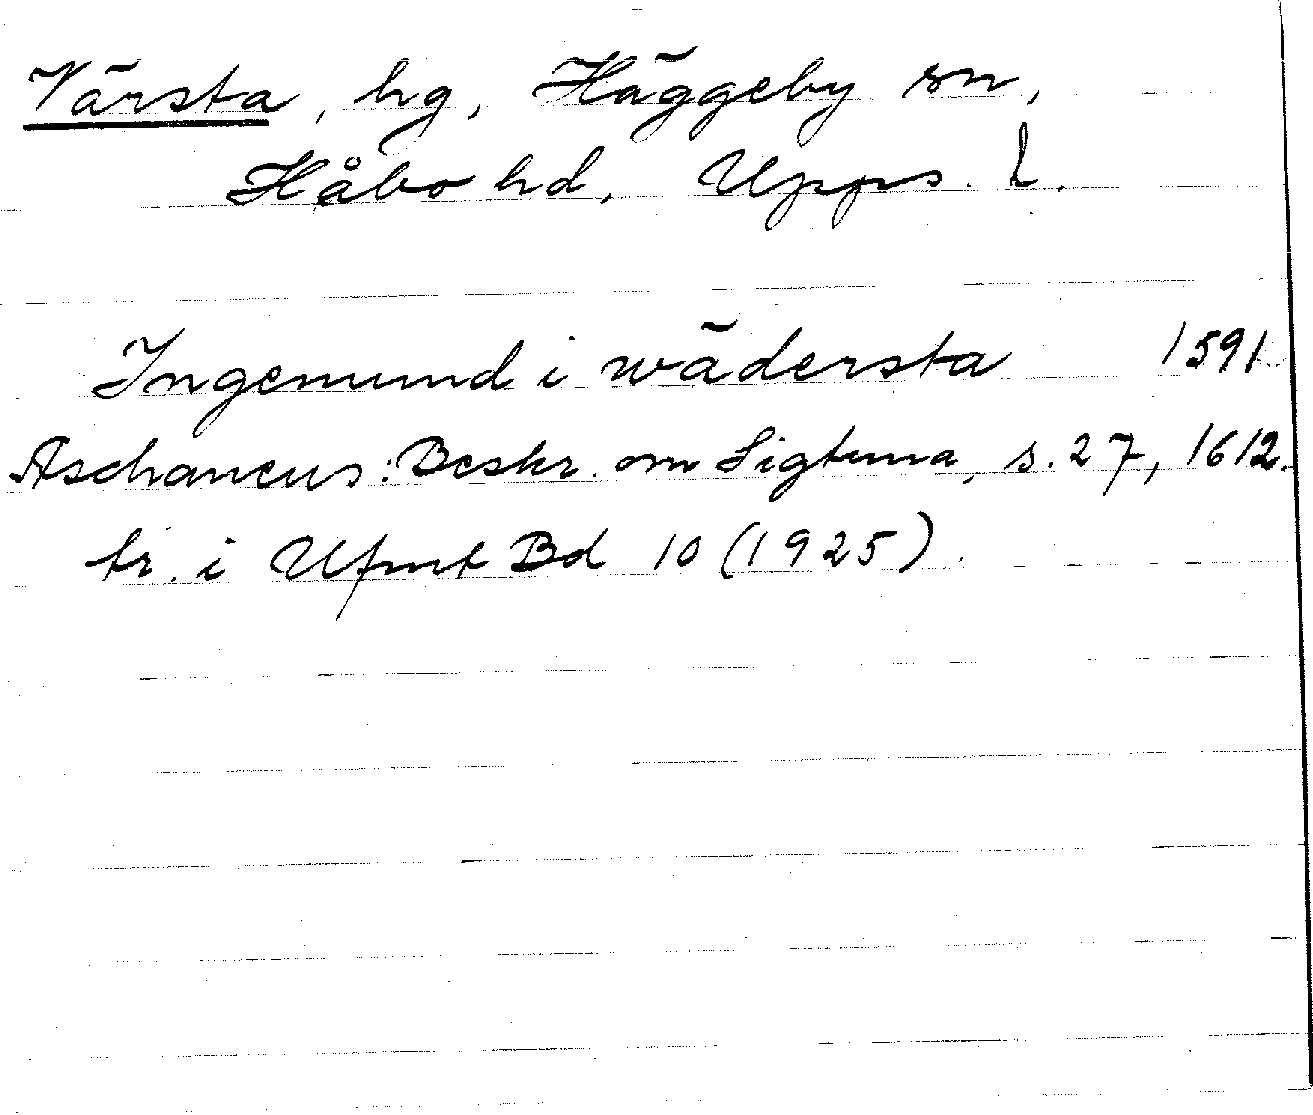 Värsta, hg, Häggeby sn,
Håbo hd, Upps. l.
Ingemund i wädersta 1591
Aschaneus: Beskr. om Sigtuna, s. 27, 1612.
tr. i Ufmt Bd 10 (1925).